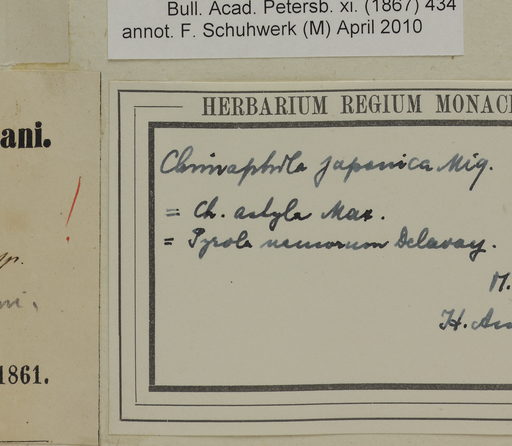 Bull. Acad. Petersb. xi. (1867) 434
annot. F. Schuhwerk (M) April 2010
ani.
1861.
HERBARIUM REGIUM MONAC
Chimaphila japonica Miq.
= Ch. astyla Max.
= Pyrola nemorum Delavay.
M.
H. An